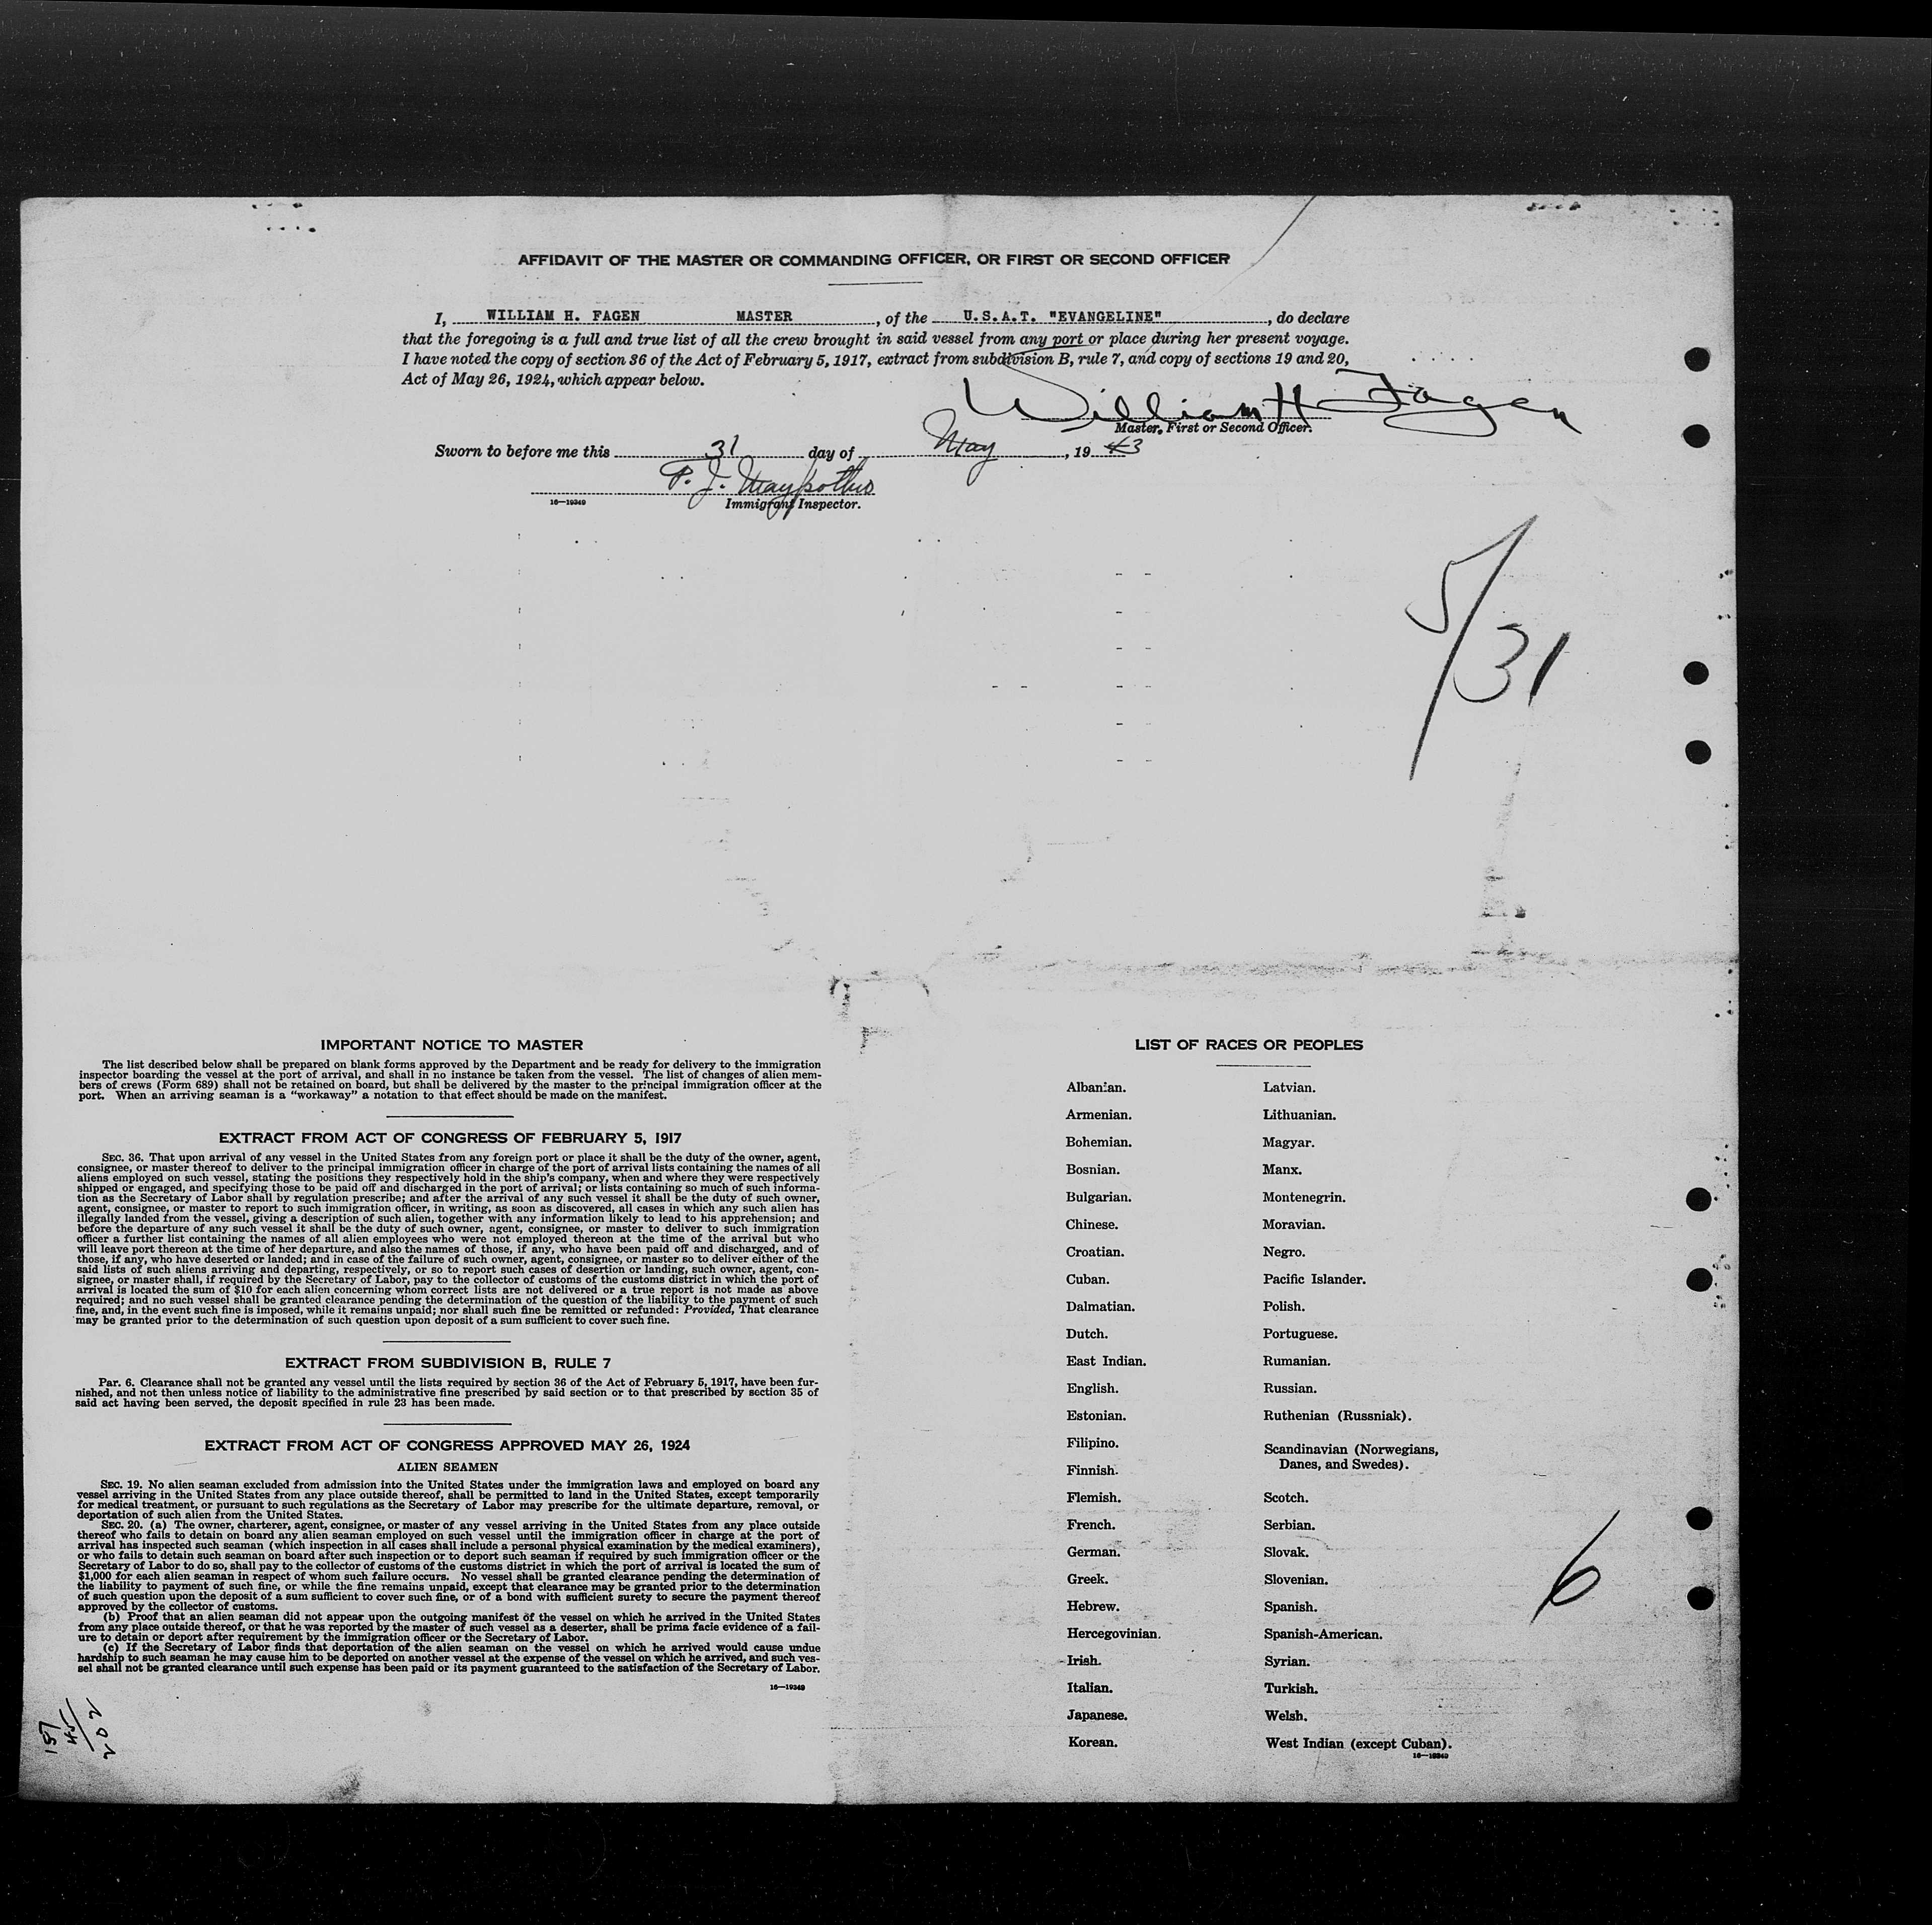 AFFIDAVIT OF THE MASTER OR COMMANDING OFFICER, OR FIRST OR SECOND OFFICER
I, WILLIAM H. FAGEN MASTER, of the U.S.A.T. "EVANGELINE", do declare
that the foregoing is a full and true list of all the crew brought in said vessel from any port or place during her present voyage.
I have noted the copy of section 36 of the Act of February 5, 1917, extract from subdivision B, rule 7, and copy of sections 19 and 20,
Act of May 26, 1924, which appear below.
William H Fagen
Master, First or Second Officer.
Sworn to before me this 31 day of May, 19 43
P. J.
16—19349 Immigrant Inspector.
5/31
IMPORTANT NOTICE TO MASTER
The list described below shall be prepared on blank forms approved by the Department and be ready for delivery to the immigration
inspector boarding the vessel at the port of arrival, and shall in no instance be taken from the vessel. The list of changes of alien mem-
bers of crews (Form 689) shall not be retained on board, but shall be delivered by the master to the principal immigration officer at the
port. When an arriving seaman is a "workaway" a notation to that effect should be made on the manifest.
EXTRACT FROM ACT OF CONGRESS OF FEBRUARY 5, 1917
SEC. 36. That upon arrival of any vessel in the United States from any foreign port or place it shall be the duty of the owner, agent,
consignee, or master thereof to deliver to the principal immigration officer in charge of the port of arrival lists containing the names of all
aliens employed on such vessel, stating the positions they respectively hold in the ship's company, when and where they were respectively
shipped or engaged, and specifying those to be paid off and discharged in the port of arrival; or lists containing so much of such informa-
tion as the Secretary of Labor shall by regulation prescribe; and after the arrival of any such vessel it shall be the duty of such owner,
agent, consignee, or master to report to such immigration officer, in writing, as soon as discovered, all cases in which any such alien has
illegally landed from the vessel, giving a description of such alien, together with any information likely to lead to his apprehension; and
before the departure of any such vessel it shall be the duty of such owner, agent, consignee, or master to deliver to such immigration
officer a further list containing the names of all alien employees who were not employed thereon at the time of the arrival but who
will leave port thereon at the time of her departure, and also the names of those, if any, who have been paid off and discharged, and of
those, if any, who have deserted or landed; and in case of the failure of such owner, agent, consignee, or master so to deliver either of the
said lists of such aliens arriving and departing, respectively, or so to report such cases of desertion or landing, such owner, agent, con-
signee, or master shall, if required by the Secretary of Labor, pay to the collector of customs of the customs district in which the port of
arrival is located the sum of $10 for each alien concerning whom correct lists are not delivered or a true report is not made as above
required; and no such vessel shall be granted clearance pending the determination of the question of the liability to the payment of such
fine, and, in the event such fine is imposed, while it remains unpaid; nor shall such fine be remitted or refunded: Provided, That clearance
may be granted prior to the determination of such question upon deposit of a sum sufficient to cover such fine.
EXTRACT FROM SUBDIVISION B, RULE 7
Par. 6. Clearance shall not be granted any vessel until the lists required by section 36 of the Act of February 5, 1917, have been fur-
nished, and not then unless notice of liability to the administrative fine prescribed by said section or to that prescribed by section 35 of
said act having been served, the deposit specified in rule 23 has been made.
EXTRACT FROM ACT OF CONGRESS APPROVED MAY 26, 1924
ALIEN SEAMEN
SEC. 19. No alien seaman excluded from admission into the United States under the immigration laws and employed on board any
vessel arriving in the United States from any place outside thereof, shall be permitted to land in the United States, except temporarily
for medical treatment, or pursuant to such regulations as the Secretary of Labor may prescribe for the ultimate departure, removal, or
deportation of such alien from the United States.
SEC. 20. (a) The owner, charterer, agent, consignee, or master of any vessel arriving in the United States from any place outside
thereof who fails to detain on board any alien seaman employed on such vessel until the immigration officer in charge at the port of
arrival has inspected such seaman (which inspection in all cases shall include a personal physical examination by the medical examiners),
or who fails to detain such seaman on board after such inspection or to deport such seaman if required by such immigration officer or the
Secretary of Labor to do so, shall pay to the collector of customs of the customs district in which the port of arrival is located the sum of
$1,000 for each alien seaman in respect of whom such failure occurs. No vessel shall be granted clearance pending the determination of
the liability to payment of such fine, or while the fine remains unpaid, except that clearance may be granted prior to the determination
of such question upon the deposit of a sum sufficient to cover such fine, or of a bond with sufficient surety to secure the payment thereof
approved by the collector of customs.
(b) Proof that an alien seaman did not appear upon the outgoing manifest of the vessel on which he arrived in the United States
from any place outside thereof, or that he was reported by the master of such vessel as a deserter, shall be prima facie evidence of a fail-
ure to detain or deport after requirement by the immigration officer or the Secretary of Labor.
(c) If the Secretary of Labor finds that deportation of the alien seaman on the vessel on which he arrived would cause undue
hardship to such seaman he may cause him to be deported on another vessel at the expense of the vessel on which he arrived, and such ves-
sel shall not be granted clearance until such expense has been paid or its payment guaranteed to the satisfaction of the Secretary of Labor.
16—19349
157
45
202
LIST OF RACES OR PEOPLES
Albanian.
Armenian.
Bohemian.
Bosnian.
Bulgarian.
Chinese.
Croatian.
Cuban.
Dalmatian.
Dutch.
East Indian.
English.
Estonian.
Filipino.
Finnish.
Flemish.
French.
German.
Greek.
Hebrew.
Hercegovinian.
Irish.
Italian.
Japanese.
Korean.
Latvian.
Lithuanian.
Magyar.
Manx.
Montenegrin.
Moravian.
Negro.
Pacific Islander.
Polish.
Portuguese.
Rumanian.
Russian.
Ruthenian (Russniak).
Scandinavian (Norwegians,
Danes, and Swedes).
Scotch.
Serbian.
Slovak.
Slovenian.
Spanish.
Spanish-American.
Syrian.
Turkish.
Welsh.
West Indian (except Cuban).
16—19349
6